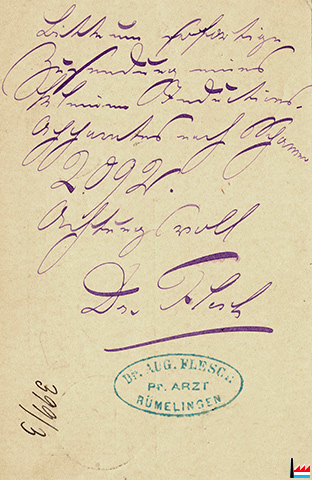 Bitte um sofortige
Zusendung eines
kleinen Inductions-
Apparates nach
2092.
Achtungsvoll
Dr. Flesch
Dr. AUG. FLESCH
Pr. ARZT
RÜMELINGEN